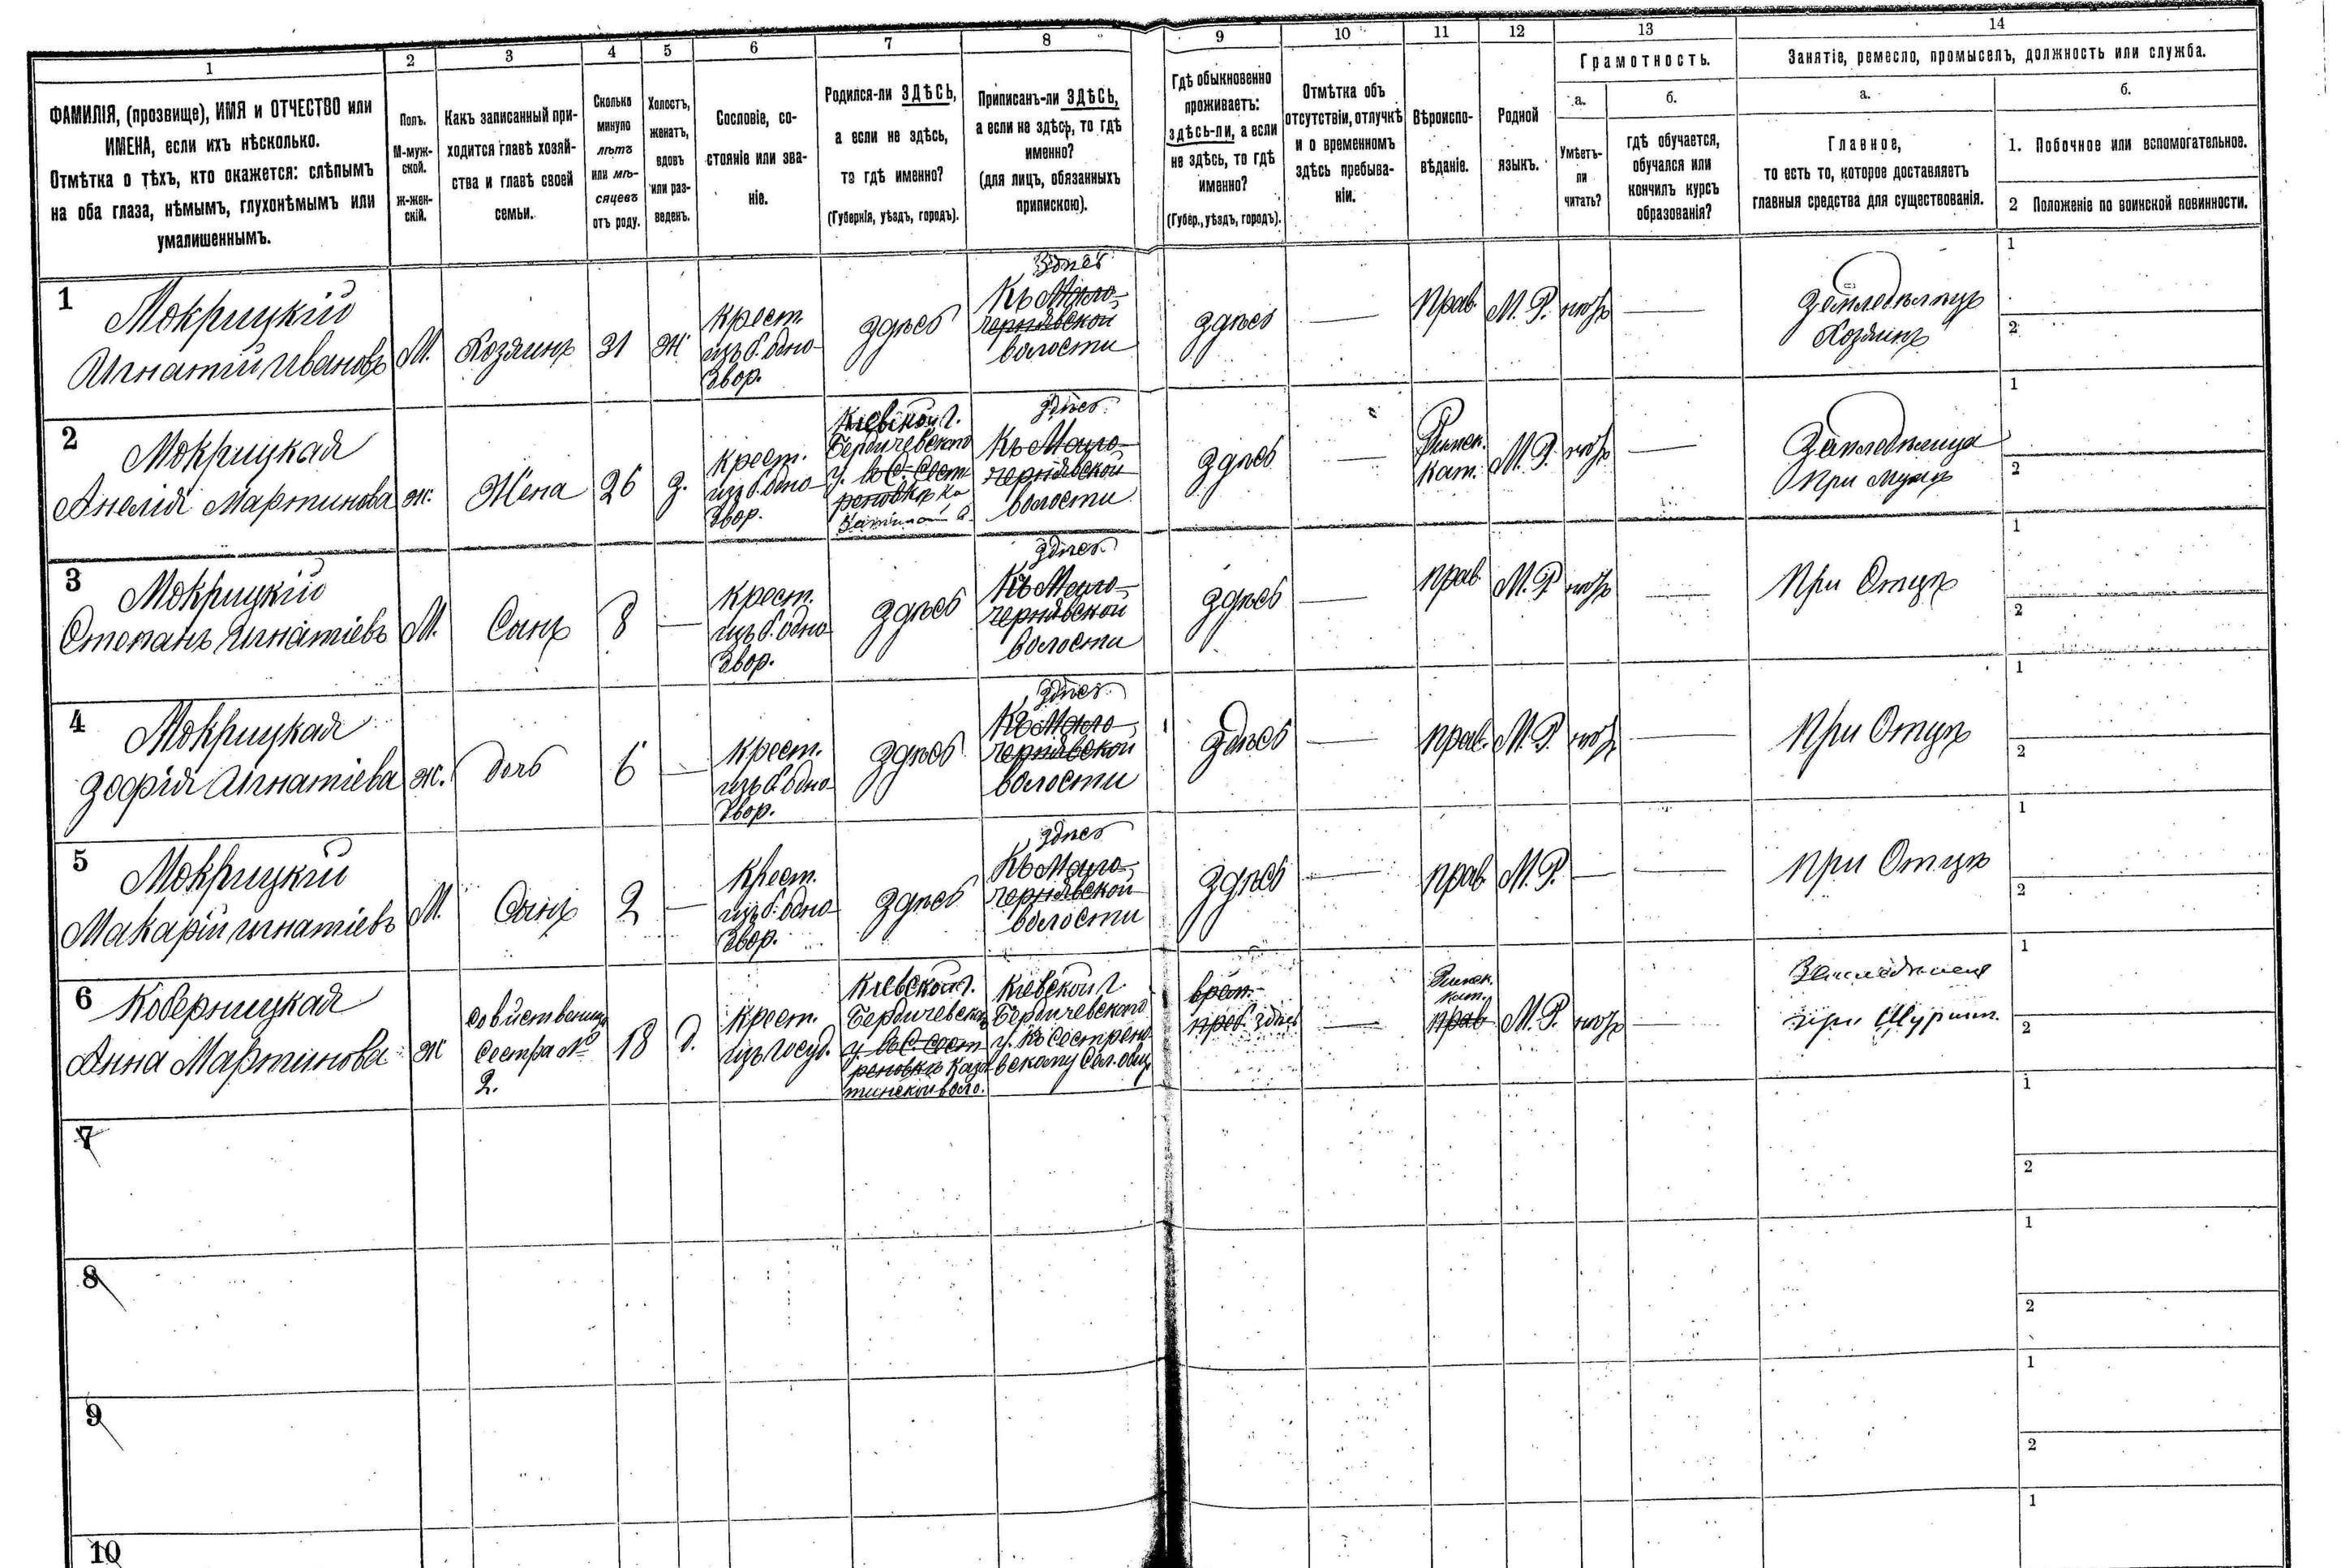 1
2
3
4
5
6
7
8
9
10
11
12
13
14
ФАМИЛІЯ, (прозвище), ИМЯ и ОТЧЕСТВО или
ИМЕНА, если ихъ нѣсколько.
Отмѣтка о тѣхъ, кто окажется: слѣпымъ
на оба глаза, нѣмымъ, глухонѣмымъ или
умалишеннымъ.
Полъ.
М-муж-
ской.
ж-жен-
скій.
Какъ записанный при-
ходится главѣ хозяй-
ства и главѣ своей
семьи.
Сколько
минуло
лѣтъ
или мѣ-
сяцевъ
отъ роду.
Холостъ,
женатъ,
вдовъ
или раз-
веденъ.
Сословіе, со-
стояніе или зва-
ніе.
Родился-ли ЗДѢСЬ,
а если не здѣсь,
то гдѣ именно?
(Губернія, уѣздъ, городъ).
Приписанъ-ли ЗДѢСЬ,
а если не здѣсь, то гдѣ
именно?
(для лицъ, обязанныхъ
припискою).
Гдѣ обыкновенно
проживаетъ:
здѣсь-ли, а если
не здѣсь, то гдѣ
именно?
(Губер., уѣздъ, городъ).
Отмѣтка объ
отсутствіи, отлучкѣ
и о временномъ
здѣсь пребыва-
ніи.
Вѣроиспо-
вѣданіе.
Родной
языкъ.
Грамотность.
а.
Умѣетъ-
ли
читать?
б.
гдѣ обучается,
обучался или
кончилъ курсъ
образованія?
Занятіе, ремесло, промыселъ, должность или служба.
а.
Главное,
то есть то, которое доставляетъ
главныя средства для существованія.
б.
1. Побочное или вспомогательное.
2 Положеніе по воинской повинности.
1
Мокрицкій
Игнатій Ивановъ
М.
Хозяинъ
31
Ж
крест.
изъ б. одно-
двор.
здѣсь
Здѣсь
Къ Мало-
чернявской
волости
здѣсь
—
прав
М. Р.
нѣтъ
—
земледѣлецъ
Хозяинъ
1
2
2
Мокрицкая
Анелія Мартинова
ж.
Жена
26
з.
крест.
изъ б. одно
двор.
Кіевской г.
Бердичевского
у. въ С. Сест
реновкѣ Ка
здѣсь
Къ Мало-
чернявской
волости
здѣсь
—
Римск.
кат.
М. Р.
нѣтъ
—
Земледѣлица
при мужѣ
1
2
3
Мокрицкій
Степанъ Игнатіевъ
М.
Сынъ
8
—
крест.
изъ б. одно
двор.
здѣсь
здѣсь
Къ Мало-
чернявской
волости
здѣсь
—
прав
М. Р
нѣтъ
—
при Отцѣ
1
2
4
Мокрицкая
Зофія Игнатіева
ж.
дочь
6
—
крест.
изъ б. одно-
двор.
здѣсь
здѣсь
Къ Мало-
чернявской
волости
здѣсь
—
прав.
М. Р.
нѣтъ
—
при Отцѣ
1
2
5
Мокрицкій
Макарій Игнатіевъ
М.
Сынъ
2
—
крест.
изъ б. одно-
двор.
здѣсь
здѣсь
Къ Мало-
чернявской
волости
здѣсь
—
прав
М. Р.
—
—
при Отцѣ
1
2
6
Коверницкая
Анна Мартинова
Ж
Сестра №
2.
18
д.
крест.
изъ госуд.
Кіевской г.
Бердичевского
у. въ С. Сест
реновкѣ Каза
тинской воло.
Кіевской г.
Бердичевского
у. Къ Сестрено-
вскому Сел. общ.
врем.
преб. здѣсь
—
Римск.
кат.
прав
М. Р.
нѣтъ
—
при
1
2
7
1
2
8
1
2
9
1
2
10
1